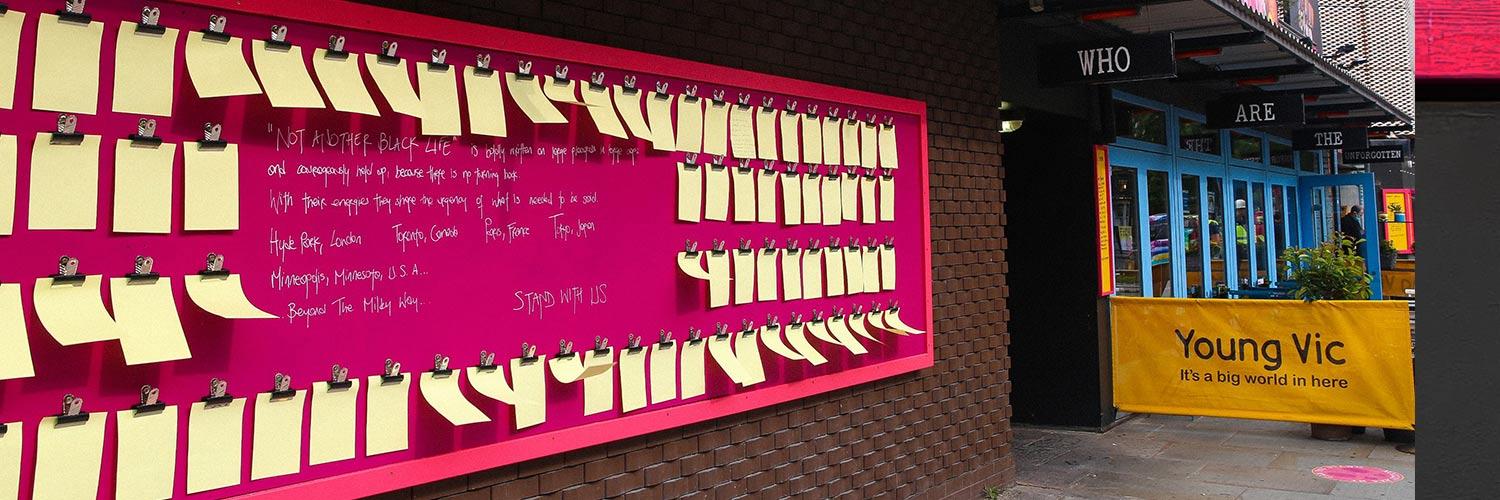 "NOT ANOTHER BLACK LIFE" is boldly written on large placards in large caps
and courageously held up, because there is no turning back.
With their energies they shape the urgency of what is needed to be said.
Hyde Park, London Toronto, Canada Paris, France Tokyo, Japan
Minneapolis, Minnesota, U.S.A...
..Beyond The Milky Way...
STAND WITH US
WHO
ARE
THE
UNFORGOTTEN
Young Vic
It's a big world in here